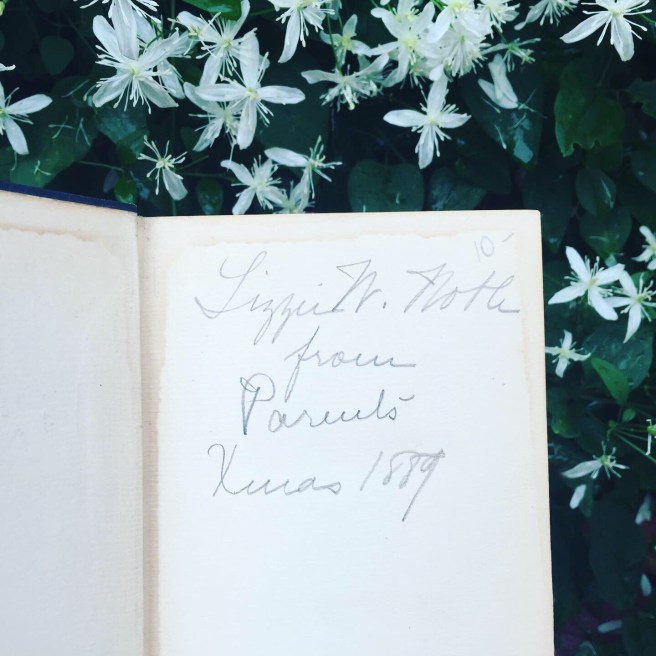 10-
Lizzie W. Noth
from
Parents
Xmas 1889